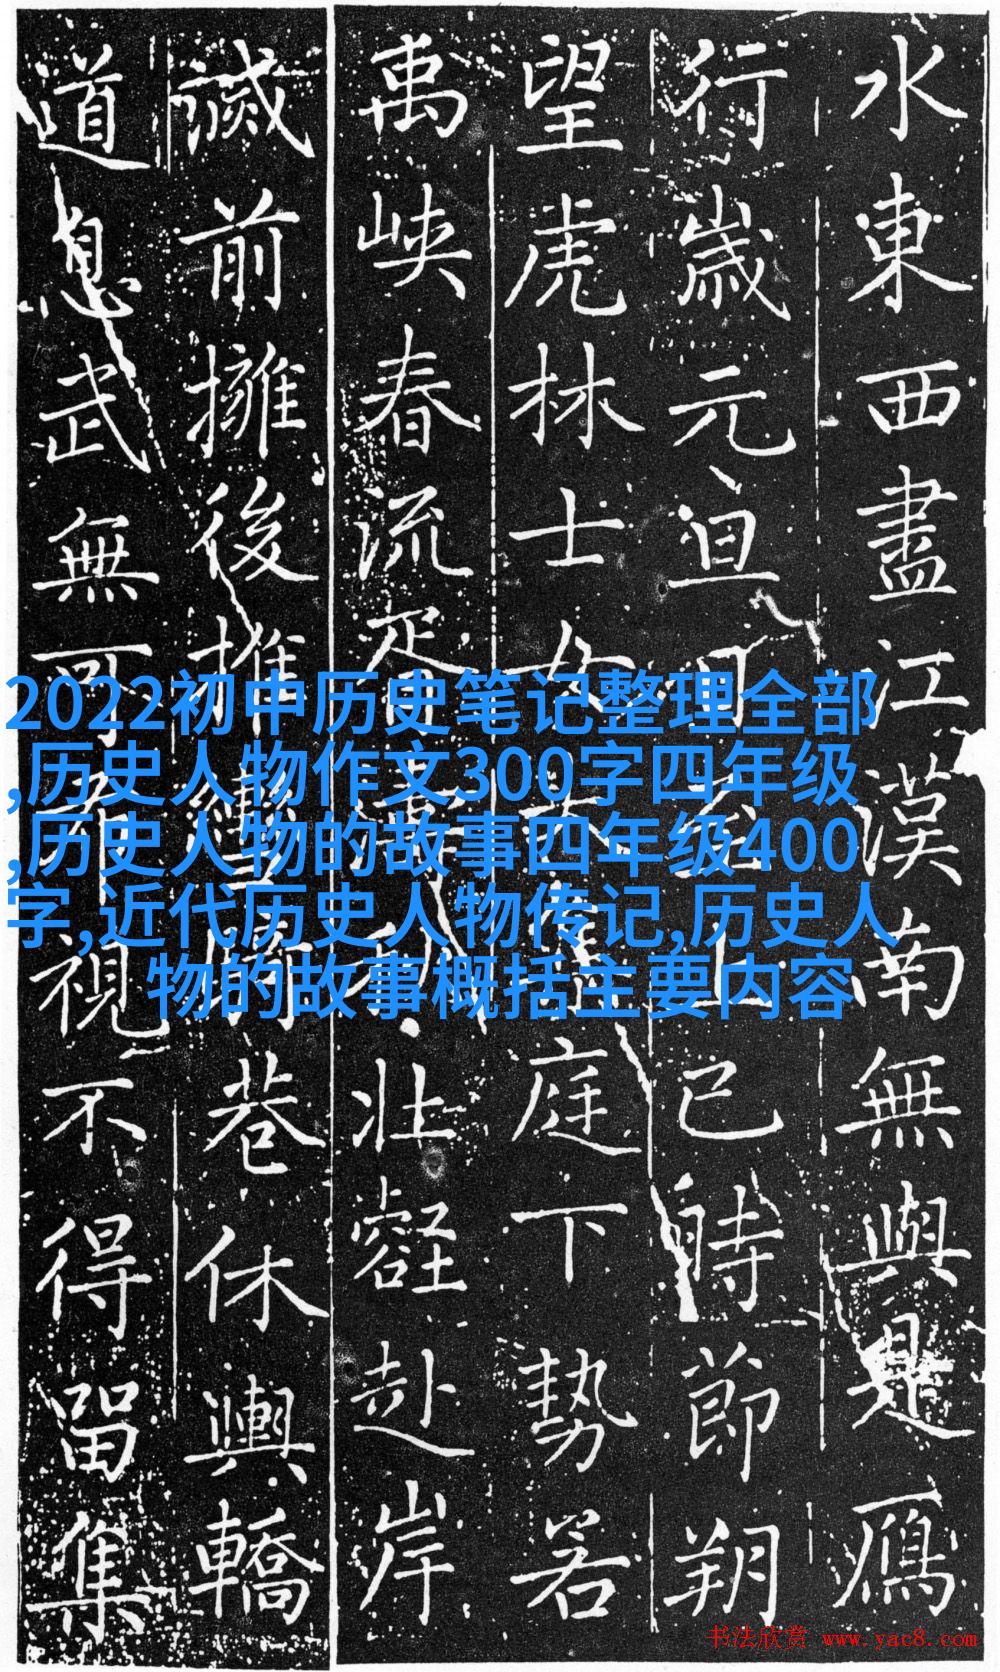 水東西盡江漢南無與是鴈
行歲元旦上巳時節朔
望虎林士女庭下勢若
禹峽春流壯赴岸
前擁後推巷休輿轎
道息武無可視不得留集
2022初中历史笔记整理全部
,历史人物作文300字四年级
,历史人物的故事四年级400
字,近代历史人物传记,历史人
物的故事概括主要内容
书法欣赏 www.yac8.com